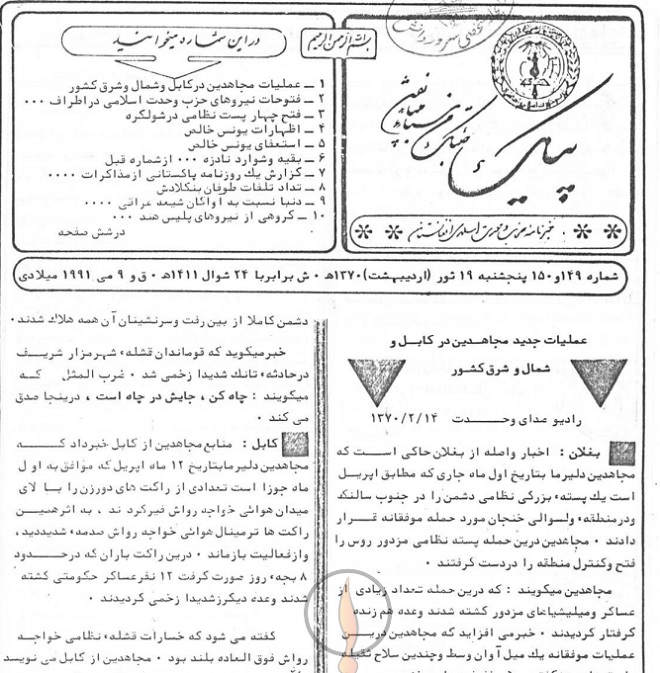 بسم الله الرحمن الرحیم
در این شماره میخوانید
۱ ــ عملیات مجاهدین در کابل وشمال وشرق کشور
۲ ــ فتوحات نیروهای حزب وحدت اسلامی در اطراف ۰۰۰
۳ ــ فتح چهار پست نظامی در شولگره
۴ ــ اظهارات یونس خالص
۵ ــ استعفای یونس خالص
۶ ــ بقیه وشوارد نادزه ۰۰۰ از شماره قبل
۷ ــ گزارش یك روزنامه پاکستانی از مذاکرات ۰۰۰۰
۸ ــ تداد تلفات طوفان بنکلادش
۹ ــ دنیا نسبت به اواکان شیعه عراتی ۰۰۰۰
۱۰ ــ کروهی از نیروهای پلیس هند ۰۰۰
درشش صفحه
پیام
خبرنامه حزب وحدت اسلامی افغانستان
شماره ۱۴۹و۱۵۰ پنجشنبه ۱۹ ثور (اردیبهشت) ۱۳۷۰ه ۰ ش برابر با ۲۴ شوال ۱۴۱۱ه ۰ ق و ۹ می ۱۹۹۱ میلادی
عملیات جدید مجاهدین در کابل و
شمال و شرق کشور
رادیو صدای وحدت ۱۳۷۰/۲/۱۴
بغلان : اخبار واصله از بغلان حاکی است که
مجاهدین دلیرما بتاریخ اول ماه جاری که مطابق اپریل
است یك پسته٬ بزرکی نظامی دشمن را در جنوب سالنک
ودر منطقه٬ ولسوالی خنجان مورد حمله موفقانه قرار
دادند ۰ مجاهدین درین حمله پسته نظامی مزدور روس را
فتح وکنترل منطقه را دردست گرفتند ۰
مجاهدین میکویند : که درین حمله تعداد زیادی از
عساکر ومیلیشیاهای مزدور کشته شدند وعده هم زنده
کرفتار کردیدند ۰ خبر می افزاید که مجاهدین درین
عملیات موفقانه یك میل آوان وسط وچندین سلاح ثقیله
دشمن کاملا از بین رفت وسرنشینان آن همه هلاك شدند ۰
خبرمیکوید که قوماندان قشله٬ شهر مزار شریف
درحادثه٬ تانك شدیدا زخمی شد ۰ غرب المثل که
میکویند : چاه کن ، جایش در چاه است ، درینجا صدق
می کند ۰
کابل : منابع مجاهدین از کابل خبرداد که
مجاهدین دلیرما بتاریخ ۱۲ ماه اپریل که موافق به اول
ماه جوزا است تعدادی از راکت های دورزن را با لای
میدان هوائی خواجه رواش فیرکرد ند ، به اثر همین
راکت ها ترمینال هوائی خواجه رواش صدمه٬ شدیددید ،
وازفعالیت بازماند ۰ درین راکت باران که درحدود
۸ بجه٬ روز صورت کرفت ۱۲ نفرعساکر حکومتی کشته
شدند وعده دیکرزشدیدا زخمی کردیدند ۰
کفته می شود که خسارات قشله٬ نظامی خواجه
رواش فوق العاده بلند بود ۰ مجاهدین از کابل می نویسد